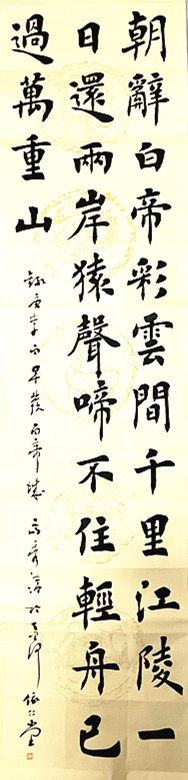 朝辭白帝彩雲間千里江陵一
日還兩岸猿聲啼不住輕舟已
過萬重山
錄唐李白早發白帝城